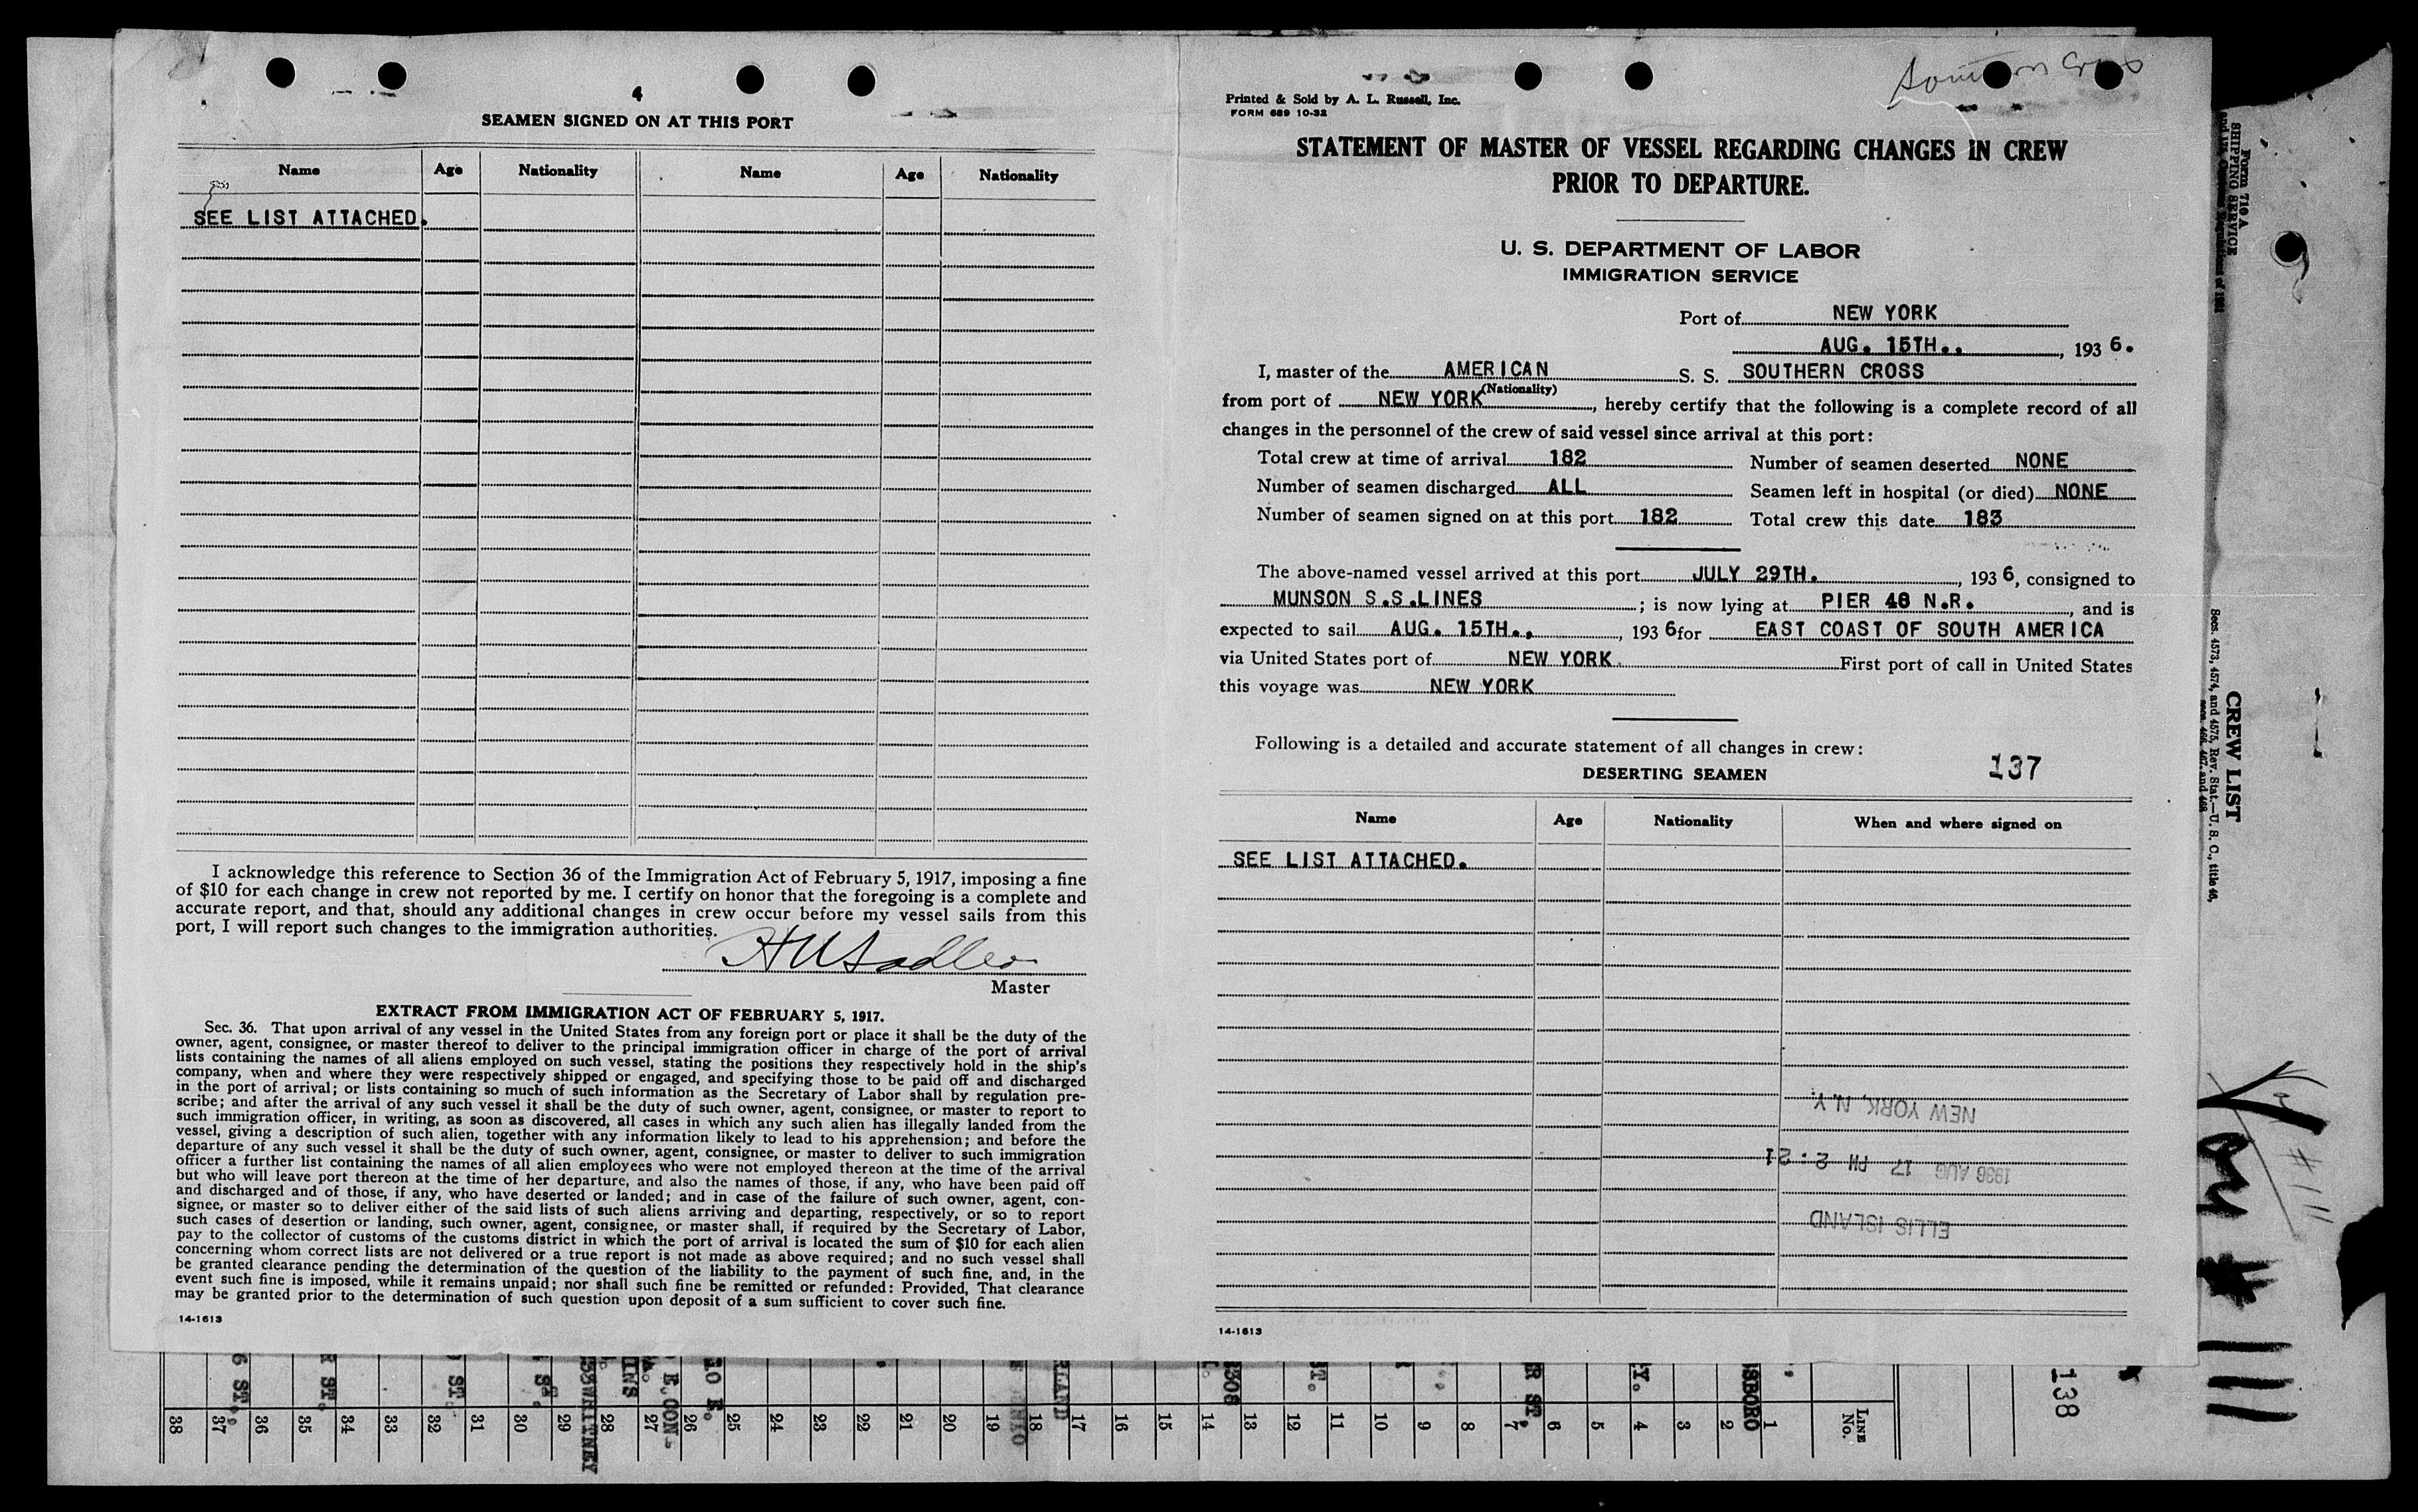 4
SEAMEN SIGNED ON AT THIS PORT
Name Age Nationality Name Age Nationality
SEE LIST ATTACHED.
I acknowledge this reference to Section 36 of the Immigration Act of February 5, 1917, imposing a fine
of $10 for each change in crew not reported by me. I certify on honor that the foregoing is a complete and
accurate report, and that, should any additional changes in crew occur before my vessel sails from this
port, I will report such changes to the immigration authorities.
Master
EXTRACT FROM IMMIGRATION ACT OF FEBRUARY 5, 1917.
Sec. 36. That upon arrival of any vessel in the United States from any foreign port or place it shall be the duty of the
owner, agent, consignee, or master thereof to deliver to the principal immigration officer in charge of the port of arrival
lists containing the names of all aliens employed on such vessel, stating the positions they respectively hold in the ship's
company, when and where they were respectively shipped or engaged, and specifying those to be paid off and discharged
in the port of arrival; or lists containing so much of such information as the Secretary of Labor shall by regulation pre-
scribe; and after the arrival of any such vessel it shall be the duty of such owner, agent, consignee, or master to report to
such immigration officer, in writing, as soon as discovered, all cases in which any such alien has illegally landed from the
vessel, giving a description of such alien, together with any information likely to lead to his apprehension; and before the
departure of any such vessel it shall be the duty of such owner, agent, consignee, or master to deliver to such immigration
officer a further list containing the names of all alien employees who were not employed thereon at the time of the arrival
but who will leave port thereon at the time of her departure, and also the names of those, if any, who have been paid off
and discharged and of those, if any, who have deserted or landed; and in case of the failure of such owner, agent, con-
signee, or master so to deliver either of the said lists of such aliens arriving and departing, respectively, or so to report
such cases of desertion or landing, such owner, agent, consignee, or master shall, if required by the Secretary of Labor,
pay to the collector of customs of the customs district in which the port of arrival is located the sum of $10 for each alien
concerning whom correct lists are not delivered or a true report is not made as above required; and no such vessel shall
be granted clearance pending the determination of the question of the liability to the payment of such fine, and, in the
event such fine is imposed, while it remains unpaid; nor shall such fine be remitted or refunded: Provided, That clearance
may be granted prior to the determination of such question upon deposit of a sum sufficient to cover such fine.
14-1613
Southern Cross
Printed & Sold by A. L. Russell, Inc.
FORM 689 10-32
STATEMENT OF MASTER OF VESSEL REGARDING CHANGES IN CREW
PRIOR TO DEPARTURE.
U. S. DEPARTMENT OF LABOR
IMMIGRATION SERVICE
Port of NEW YORK
AUG. 15TH.. , 193 6.
I, master of the AMERICAN S. S. SOUTHERN CROSS
(Nationality)
from port of NEW YORK , hereby certify that the following is a complete record of all
changes in the personnel of the crew of said vessel since arrival at this port:
Total crew at time of arrival 182 Number of seamen deserted NONE
Number of seamen discharged ALL Seamen left in hospital (or died) NONE
Number of seamen signed on at this port 182 Total crew this date 183
The above-named vessel arrived at this port JULY 29TH. , 193 6, consigned to
MUNSON S.S.LINES ; is now lying at PIER 48 N.R. , and is
expected to sail AUG. 15TH., , 193 6 for EAST COAST OF SOUTH AMERICA
via United States port of NEW YORK. First port of call in United States
this voyage was NEW YORK
Following is a detailed and accurate statement of all changes in crew:
137
DESERTING SEAMEN
Name Age Nationality When and where signed on
SEE LIST ATTACHED.
NEW YORK, N.Y.
1936 AUG 17 PM 2:21
ELLIS ISLAND
14-1613
Form 710 A
SHIPPING SERVICE
CREW LIST
Secs. 4573, 4574, and 4575, Rev. Stat.—U. S. C., title 46,
secs. 466, 467, and 468
138
LINE
No.
1 2 3 4 5 6 7 8 9 10 11 12 13 14 15 16 17 18 19 20 21 22 23 24 25 26 27 28 29 30 31 32 33 34 35 36 37 38